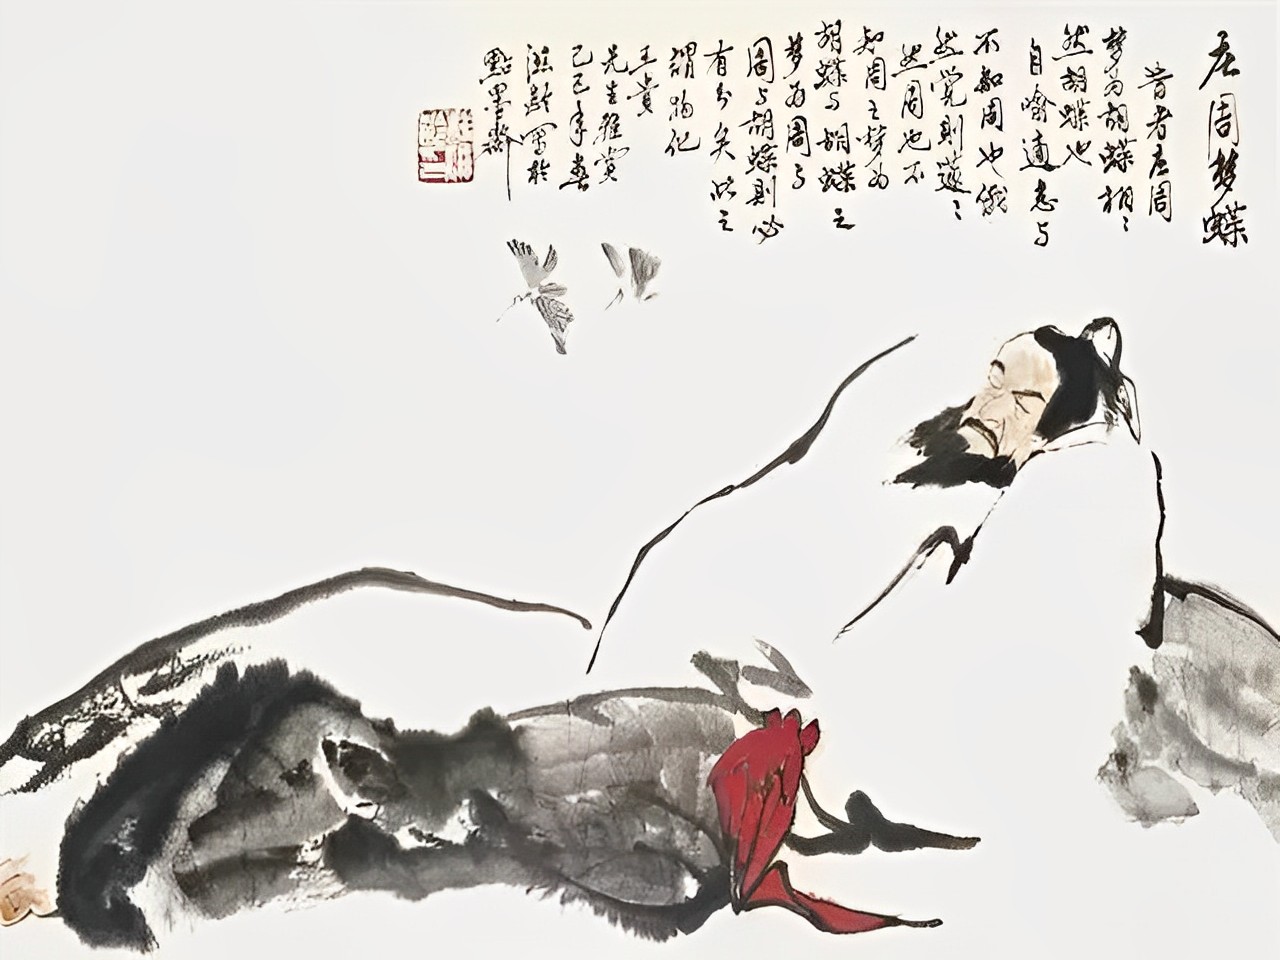 庄周梦蝶
昔者庄周
梦为胡蝶栩〻
然胡蝶也
自喻適志与
不知周也俄
然覚則蘧〻
然周也不
知周之梦为
胡蝶与胡蝶之
梦为周与
周与胡蝶則必
有分矣此之
谓物化
王貴
先生雅赏
己巳年春
写於
點墨斋